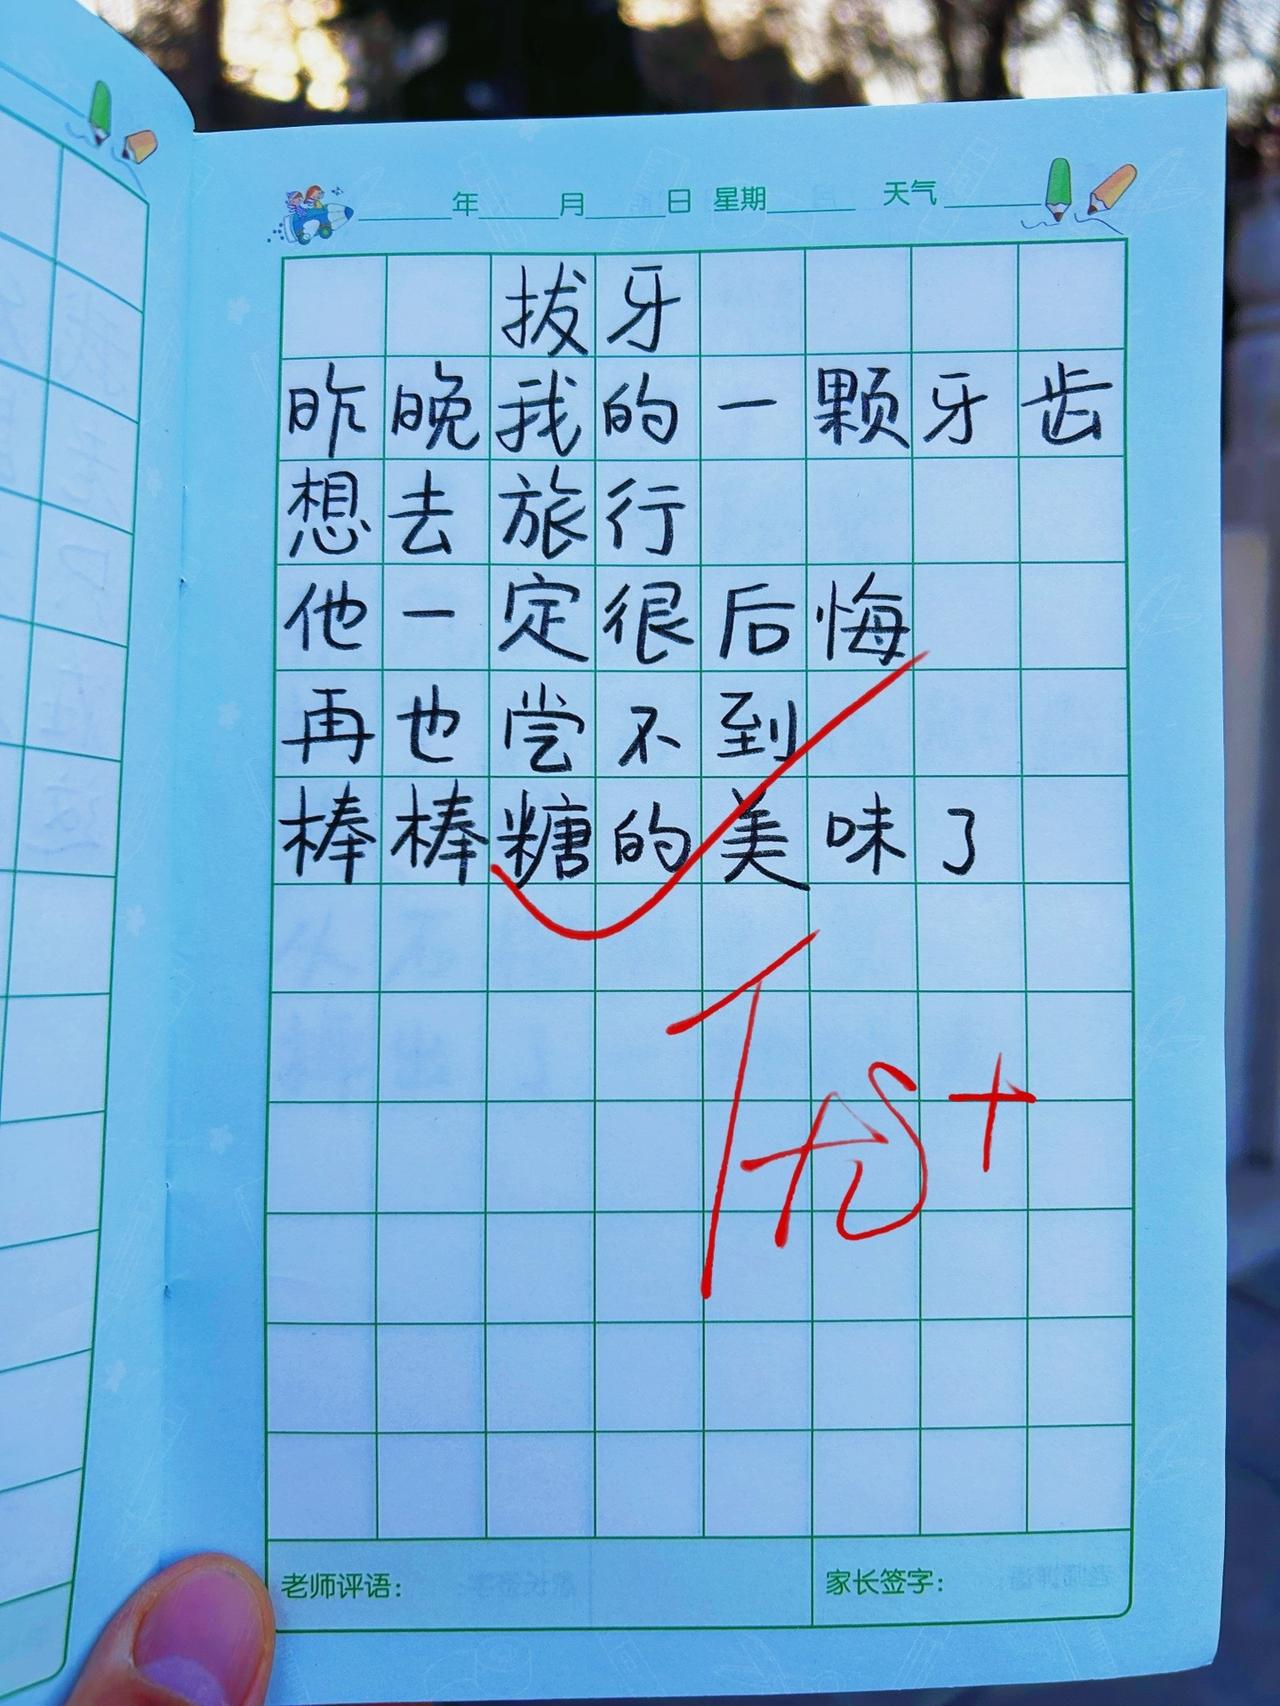 年 月 日 星期 天气
拔牙
昨晚我的一颗牙齿
想去旅行
他一定很后悔
再也尝不到
棒棒糖的美味了
优+
老师评语:
家长签字: